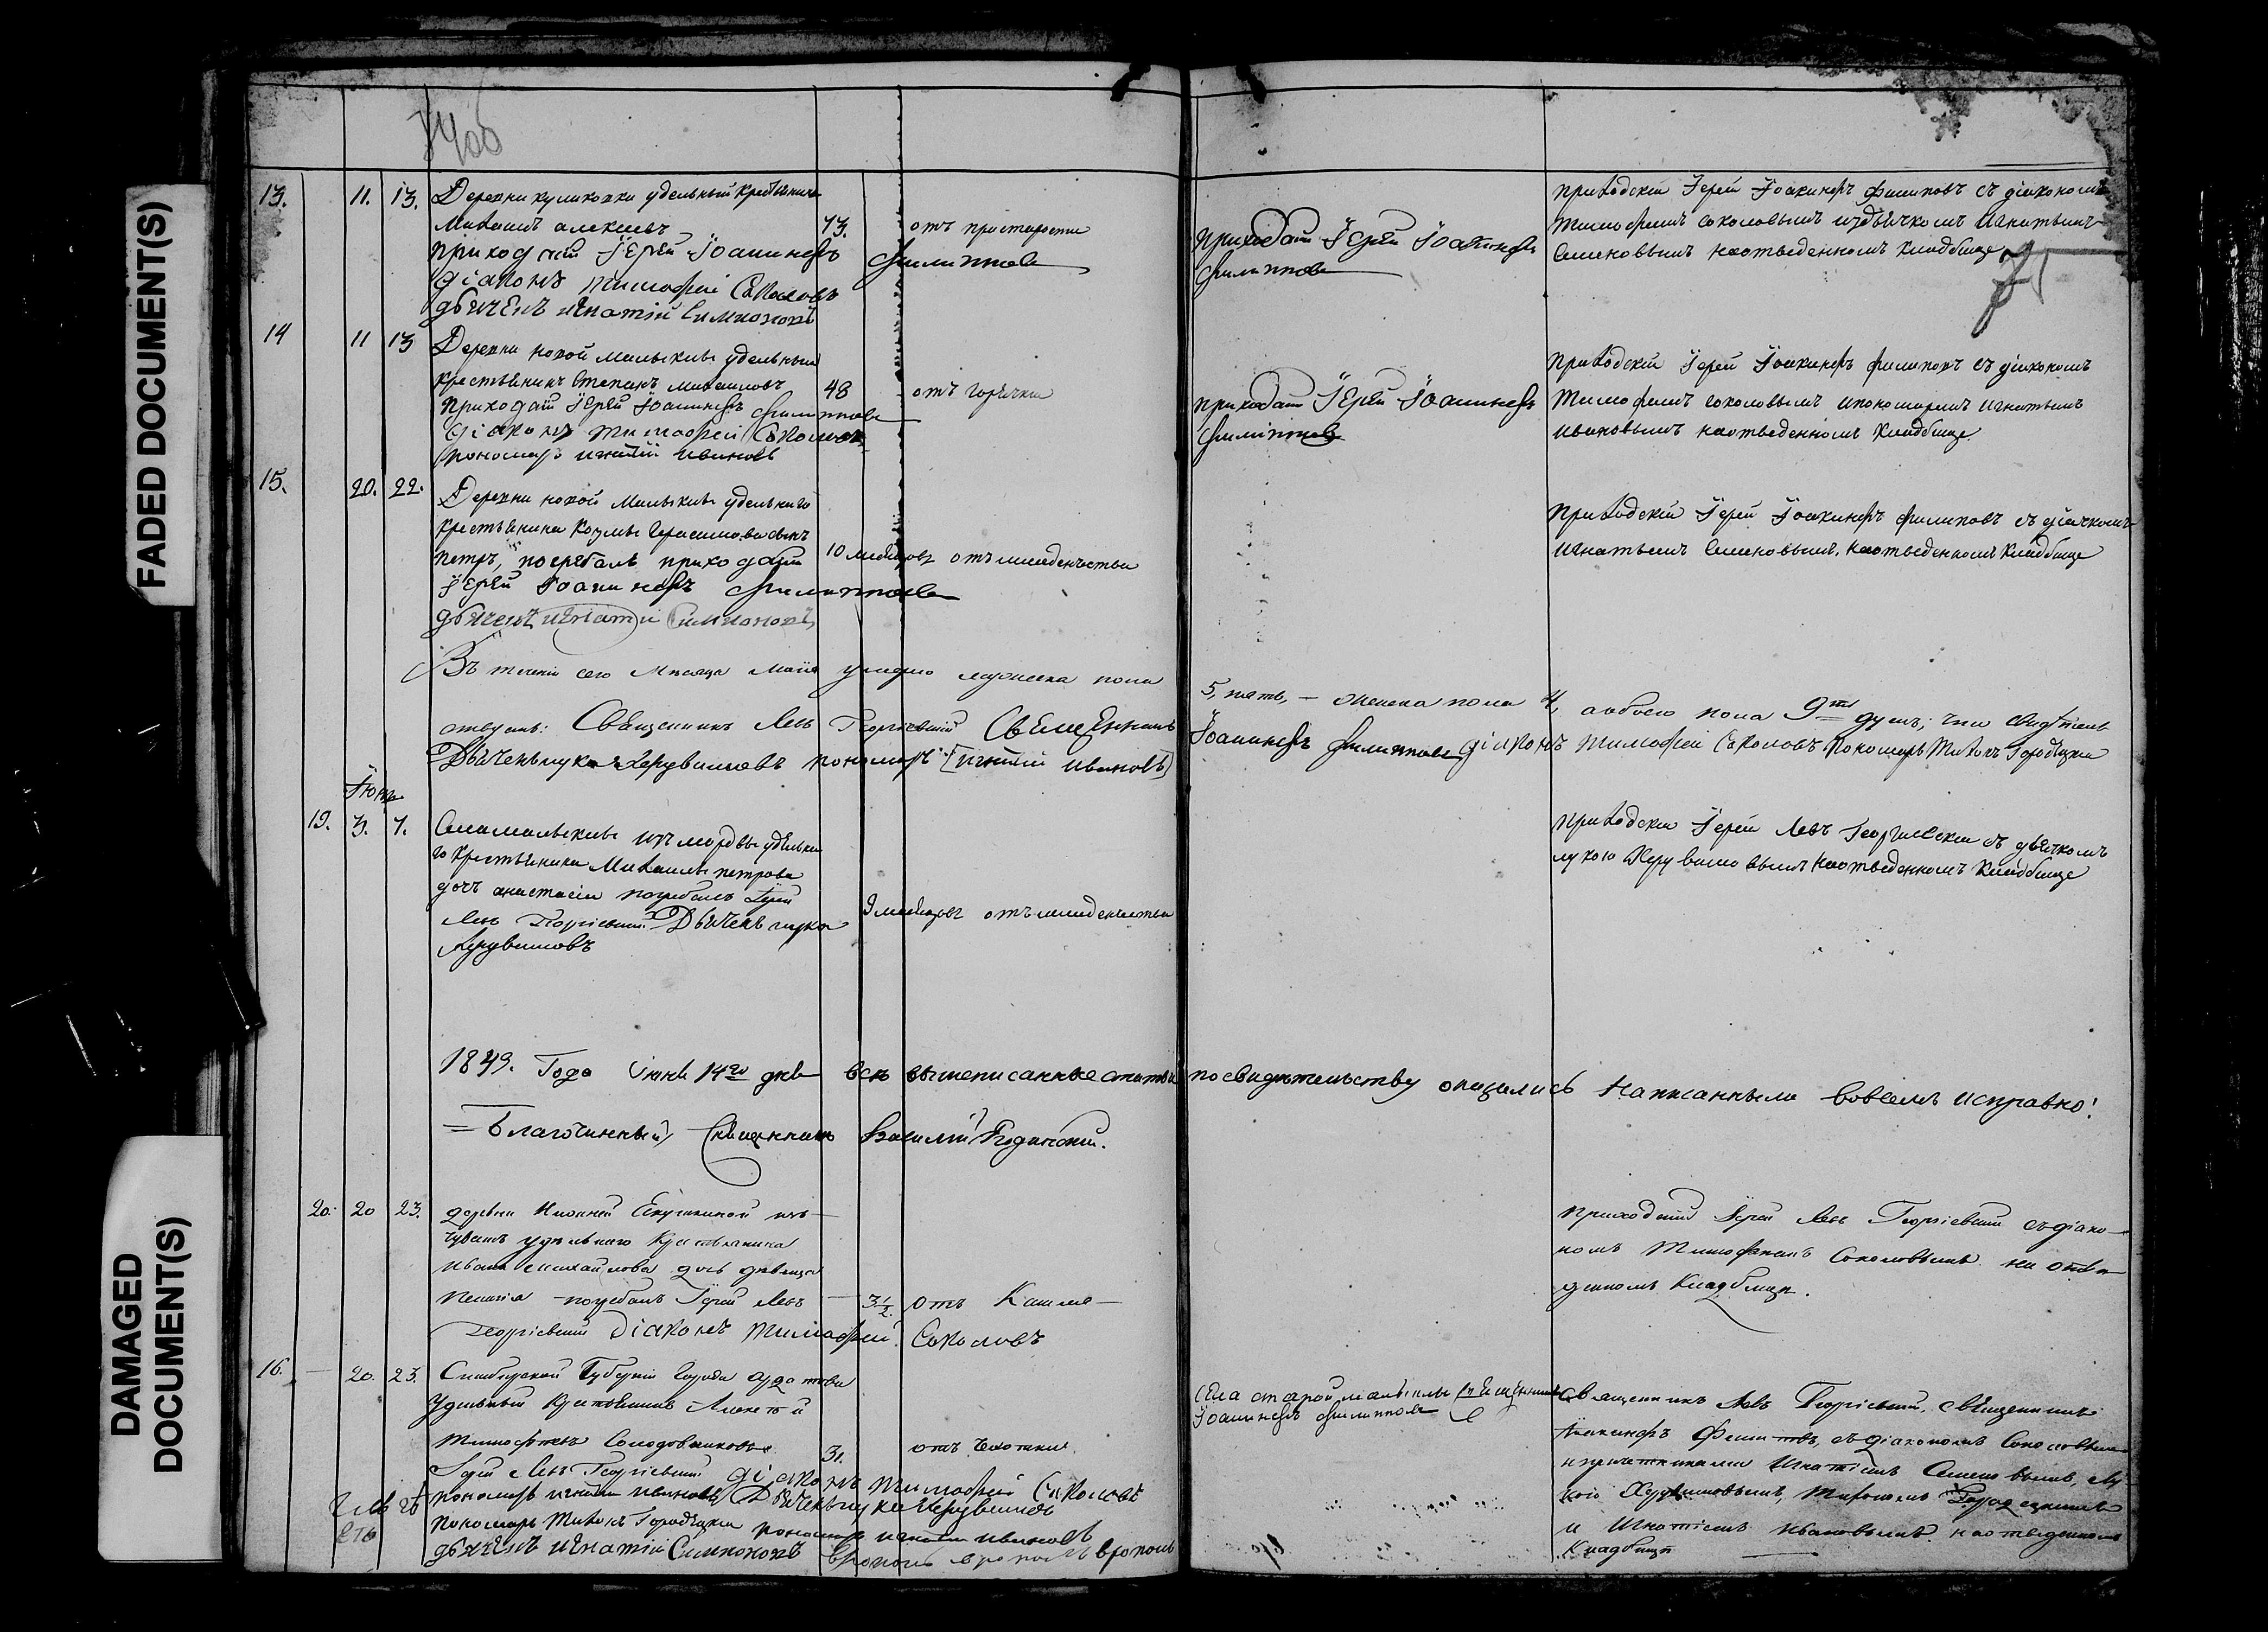 FADED DOCUMENT(S)
DAMAGED
DOCUMENT(S)
13. 11. 13. Деревни куликовки удельный крестьянинъ
Михаилъ алексѣевъ 73. отъ простарости
приходскій Іерей Іоакинфъ Филипповъ
діаконъ тимофей Соколовъ
дьячекъ игнатій Симионовъ
приходскій Іерей Іоакинфъ
Филипповъ
приходскій Іерей Іоакинфъ филиповъ съ діакономъ
тимофеемъ соколовымъ издьячкомъ Игнатьемъ
Семеновымъ наотведенномъ кладбище
75
14 11 13 Деревни новой малыклы удельный
крестьянинъ Степанъ михаиловъ 48 отъ горячки
приходскій Іерей Іоакинфъ филипповъ
діаконъ тимофей Соколовъ
пономарь игнатій ивановъ
приходскій Іерей Іоакинфъ
филипповъ
приходскій Іерей Іоакинфъ филиповъ съ діакономъ
тимофеемъ соколовымъ ипономаремъ игнатьемъ
ивановымъ наотведенномъ кладбище.
15. 20. 22. Деревни новой Малыклы удельнаго
крестьянина Козмы Герасимова сынъ
петръ, погребалъ приходскій 10 месяцовъ отъ младенчества
Іерей Іоакинфъ филипповъ
дьячекъ игнатій Симионовъ
приходскій Іерей Іоакинфъ филиповъ съ дьячкомъ
игнатьемъ Семеновымъ, наотведенномъ кладбище
Въ теченіи сего Мѣсяца маія умерло мужеска пола 5, пять, — женска пола 4, аобоего пола 9ть душъ; чемъ свидѣтель
ствуемъ: Священникъ Левъ Георгіевскій Священникъ Іоакинфъ филипповъ діаконъ тимофей Соколовъ Пономарь Тихонъ Городецкій
Дьячекълука Херувимовъ пономарь игнатій ивановъ
Іюнь
19. 3. 7. Села малыклы изъ мордвы удельна
го крестьянина Михаилы петрова
дочь анастасія погребалъ Іерей
Левъ Георгіевскій Дьячекъ лука 9 месяцовъ отъ младенчества
Херувимовъ
приходскій Іерей Левъ Георгиевскій съ дьячкомъ
лукою Херувимовымъ наотведенномъ кладбище
1849. Года іюня 14го дня всѣ вышеписанные статьи посвидѣтельству оказались написанными вовсемъ исправно!
Благочинный Священникъ Василій
20. 20 23. деревни Нижней Якушкиной изъ
чувашъ удѣльнаго Крестьянина
Ивана михайлова дочь дѣвица
пелагія — погребалъ Іерей Левъ — 3½. отъ Кашля —
Георгіевскій діаконъ тимофей Соколовъ
приходскій Іерей Левъ Георгіевскій съдіако—
номъ Тимофеемъ Соколовымъ на отве
денномъ Кладбищѣ.
16. — 20. 23. Симбирской Губерніи Города ардатова
Удѣльный Крестьянинъ Алексѣй
Тимофѣевъ Солодовниковъ 31. отъ чахотки
Іерей Левъ Георгіевскій діаконъ тимофей Соколовъ
пономарь игнатій ивановъ Дьячекълука Херувимовъ
Пономарь Тихонъ Городецкій пономарь игнатій ивановъ
дьячекъ игнатій Симионовъ
Села старой малыклы Священникъ
Іоакинфъ филипповъ
Священникъ Левъ Георгіевскій, священникъ
Іоакинфъ Филиповъ, съдіакономъ Соколовымъ
и причетниками Игнатіемъ Семеновымъ, Лу
кою Херувимовымъ, Тихономъ Городецкимъ
и Игнатіемъ Ивановымъ наотведенномъ
Кладбищѣ